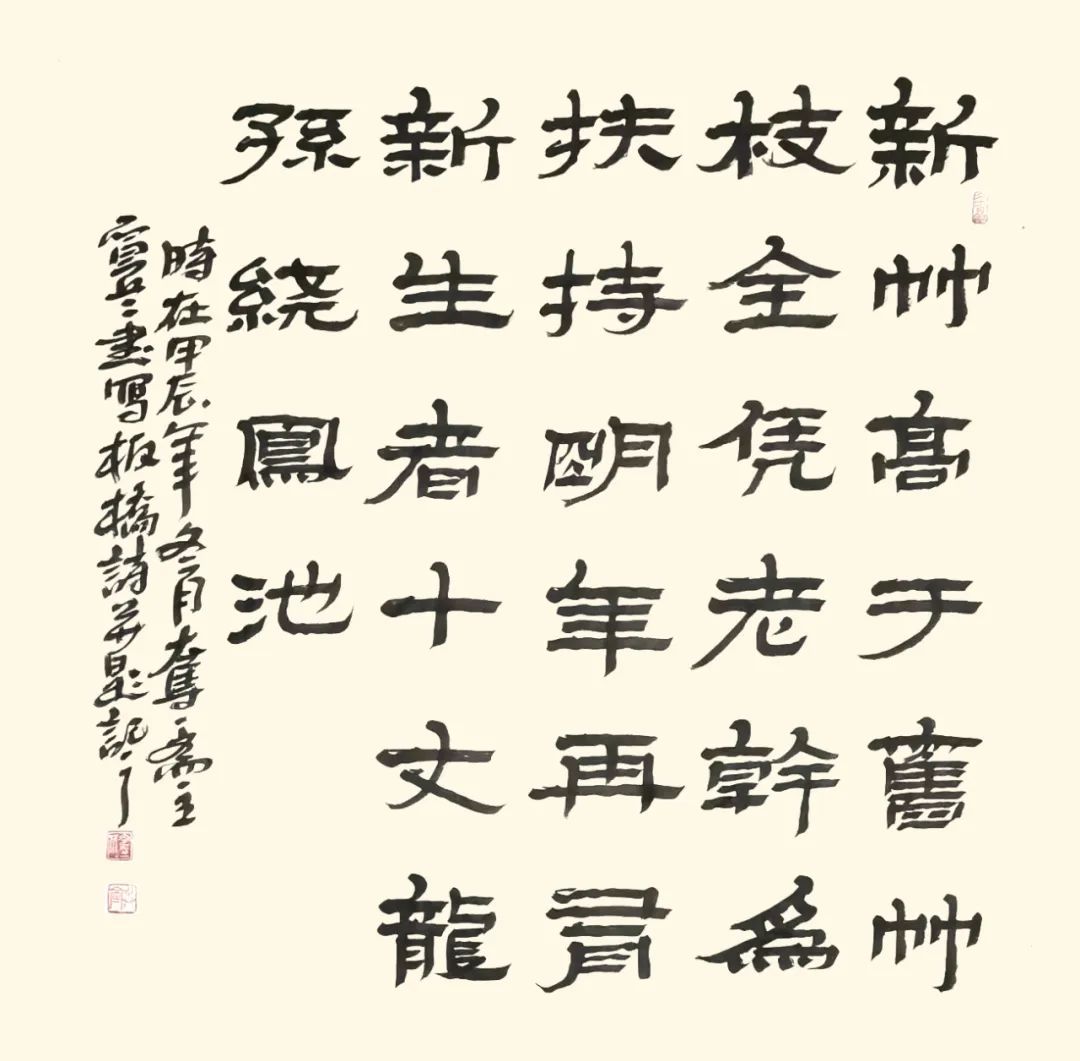 新竹高于舊竹
枝全凭老幹爲
扶持明年再有
新生者十丈龍
孫繞鳳池
時在甲辰年冬月斋主
書寫板橋詩并記